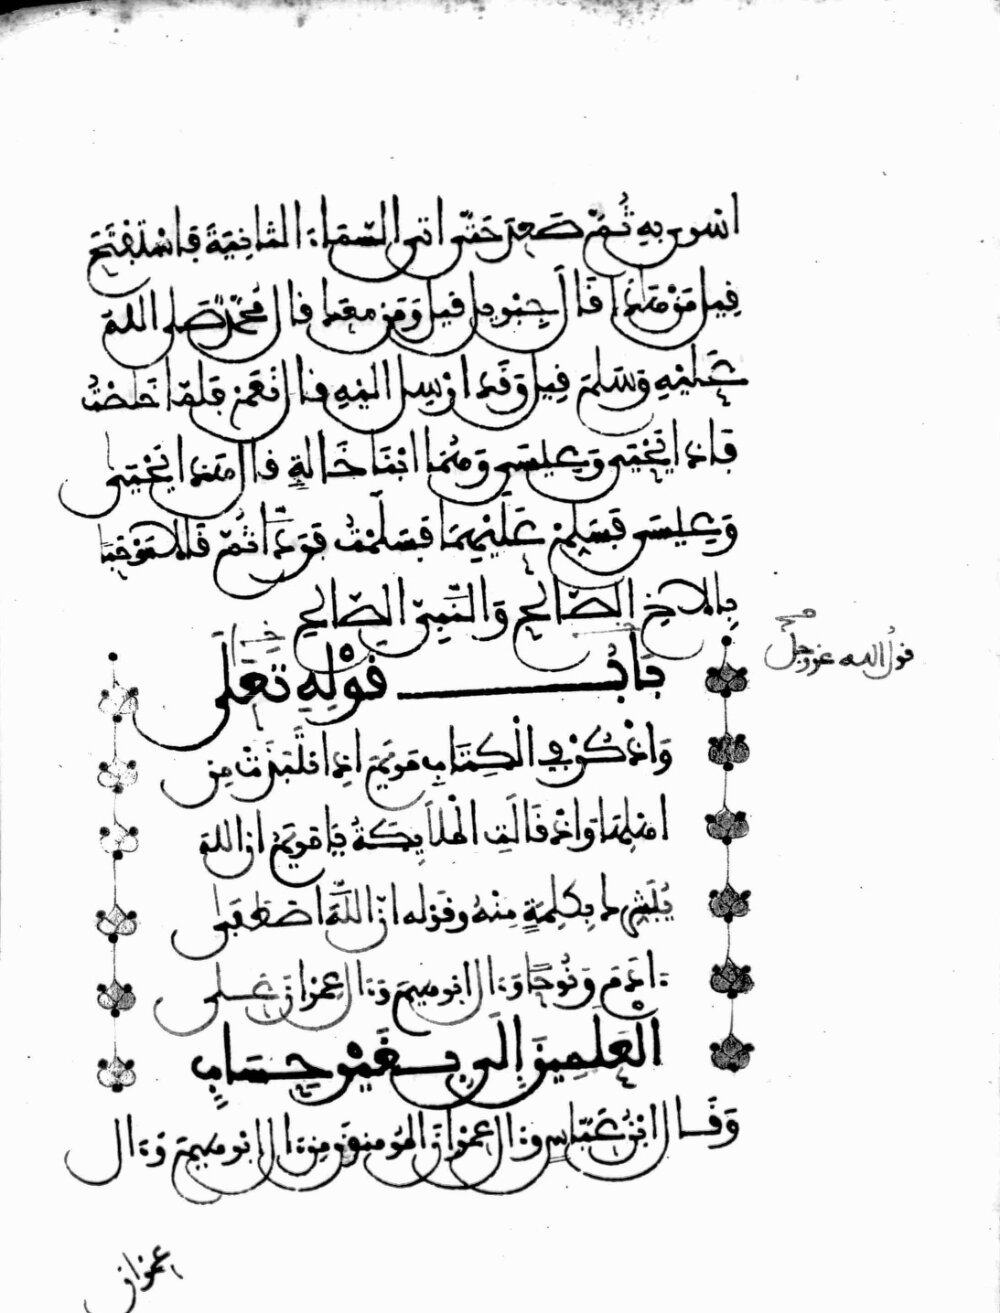 اسري به ثم صعد حتى اتى السماء الثانية فاستفتح
قيل من هذا قال جبريل قيل ومن معك قال محمد صلى الله
عليه وسلم قيل وقد ارسل اليه قال نعم فلما خلصت
فاذا يحيى وعيسى وهما ابنا خالة قال هذا يحيى
وعيسى فسلم عليهما فسلمت فردا ثم قالا مرحبا
بالاخ الصالح والنبي الصالح
باب قوله تعلى
واذكر في الكتاب مريم اذ انتبذت من
اهلها واذ قالت الملايكة يا مريم ان الله
يبشرك بكلمة منه وقوله ان الله اصطفى
ءادم ونوحا وءال ابرهيم وءال عمران على
العلمين إلى بغير حساب
وقال ابن عباس وءال عمران المومنون من ءال ابرهيم وءال
عمران
قول الله عز وجل